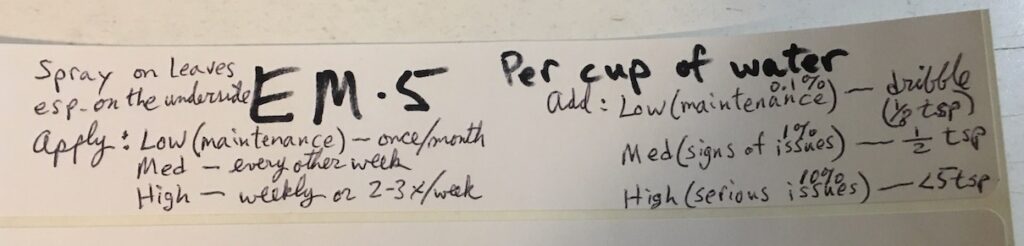 Spray on Leaves
esp- on the underside
EM•5
Apply: Low (maintenance) — once/month
Med — every other week
High — weekly or 2-3x/week
Per cup of water
Add: Low (maintenance) 0.1% — dribble (1/8 tsp)
Med (signs of issues) 1% — 1/2 tsp
High (serious issues) 10% — <5 tsp